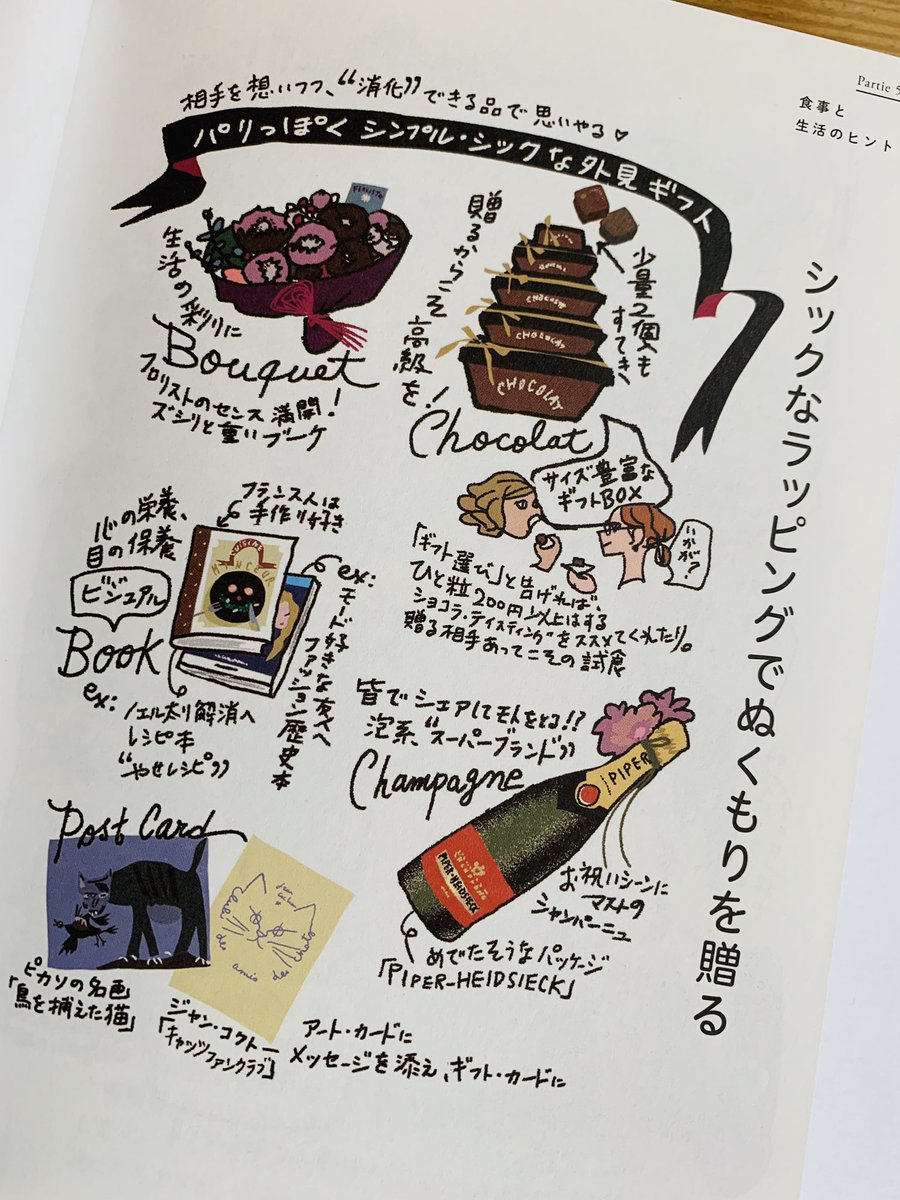 Partie 5
食事と
生活のヒント
シックなラッピングでぬくもりを贈る
相手を想いつつ、“消化”できる品で思いやる♥
パリっぽく シンプル・シックな外見 ギフト
生活の彩りに
Bouquet
フロリストのセンス満開!
ズシリと重いブーケ
贈るからこそ高級を!
少量2個入も
すてき
CHOCOLAT
CHOCOLAT
CHOCOLAT
Chocolat
サイズ豊富な
ギフトBOX
いかが?
「ギフト選び」と告げれば、
ひと粒200円以上はする
ショコラ・テイスティングをススメてくれたり。
贈る相手あってこその試食
心の栄養、
目の保養
ビジュアル
Book
フランス人は
手作り好き
CUISINE
MINCEUR
ex:
モード好きな友へ
ファッション歴史本
ex:
ノエル太り解消へ
レシピ本
“やせレシピ”
皆でシェアしてモトをとる!?
泡系“スーパーブランド”
Champagne
PIPER
PIPER-HEIDSIECK
お祝いシーンに
マストの
シャンパーニュ
めでたそうなパッケージ
「PIPER-HEIDSIECK」
Post Card
ピカソの名画
「鳥を捕えた猫」
des amis des chats
ジャン・コクトー
「キャッツファンクラブ」
アート・カードに
メッセージを添え、ギフト・カードに